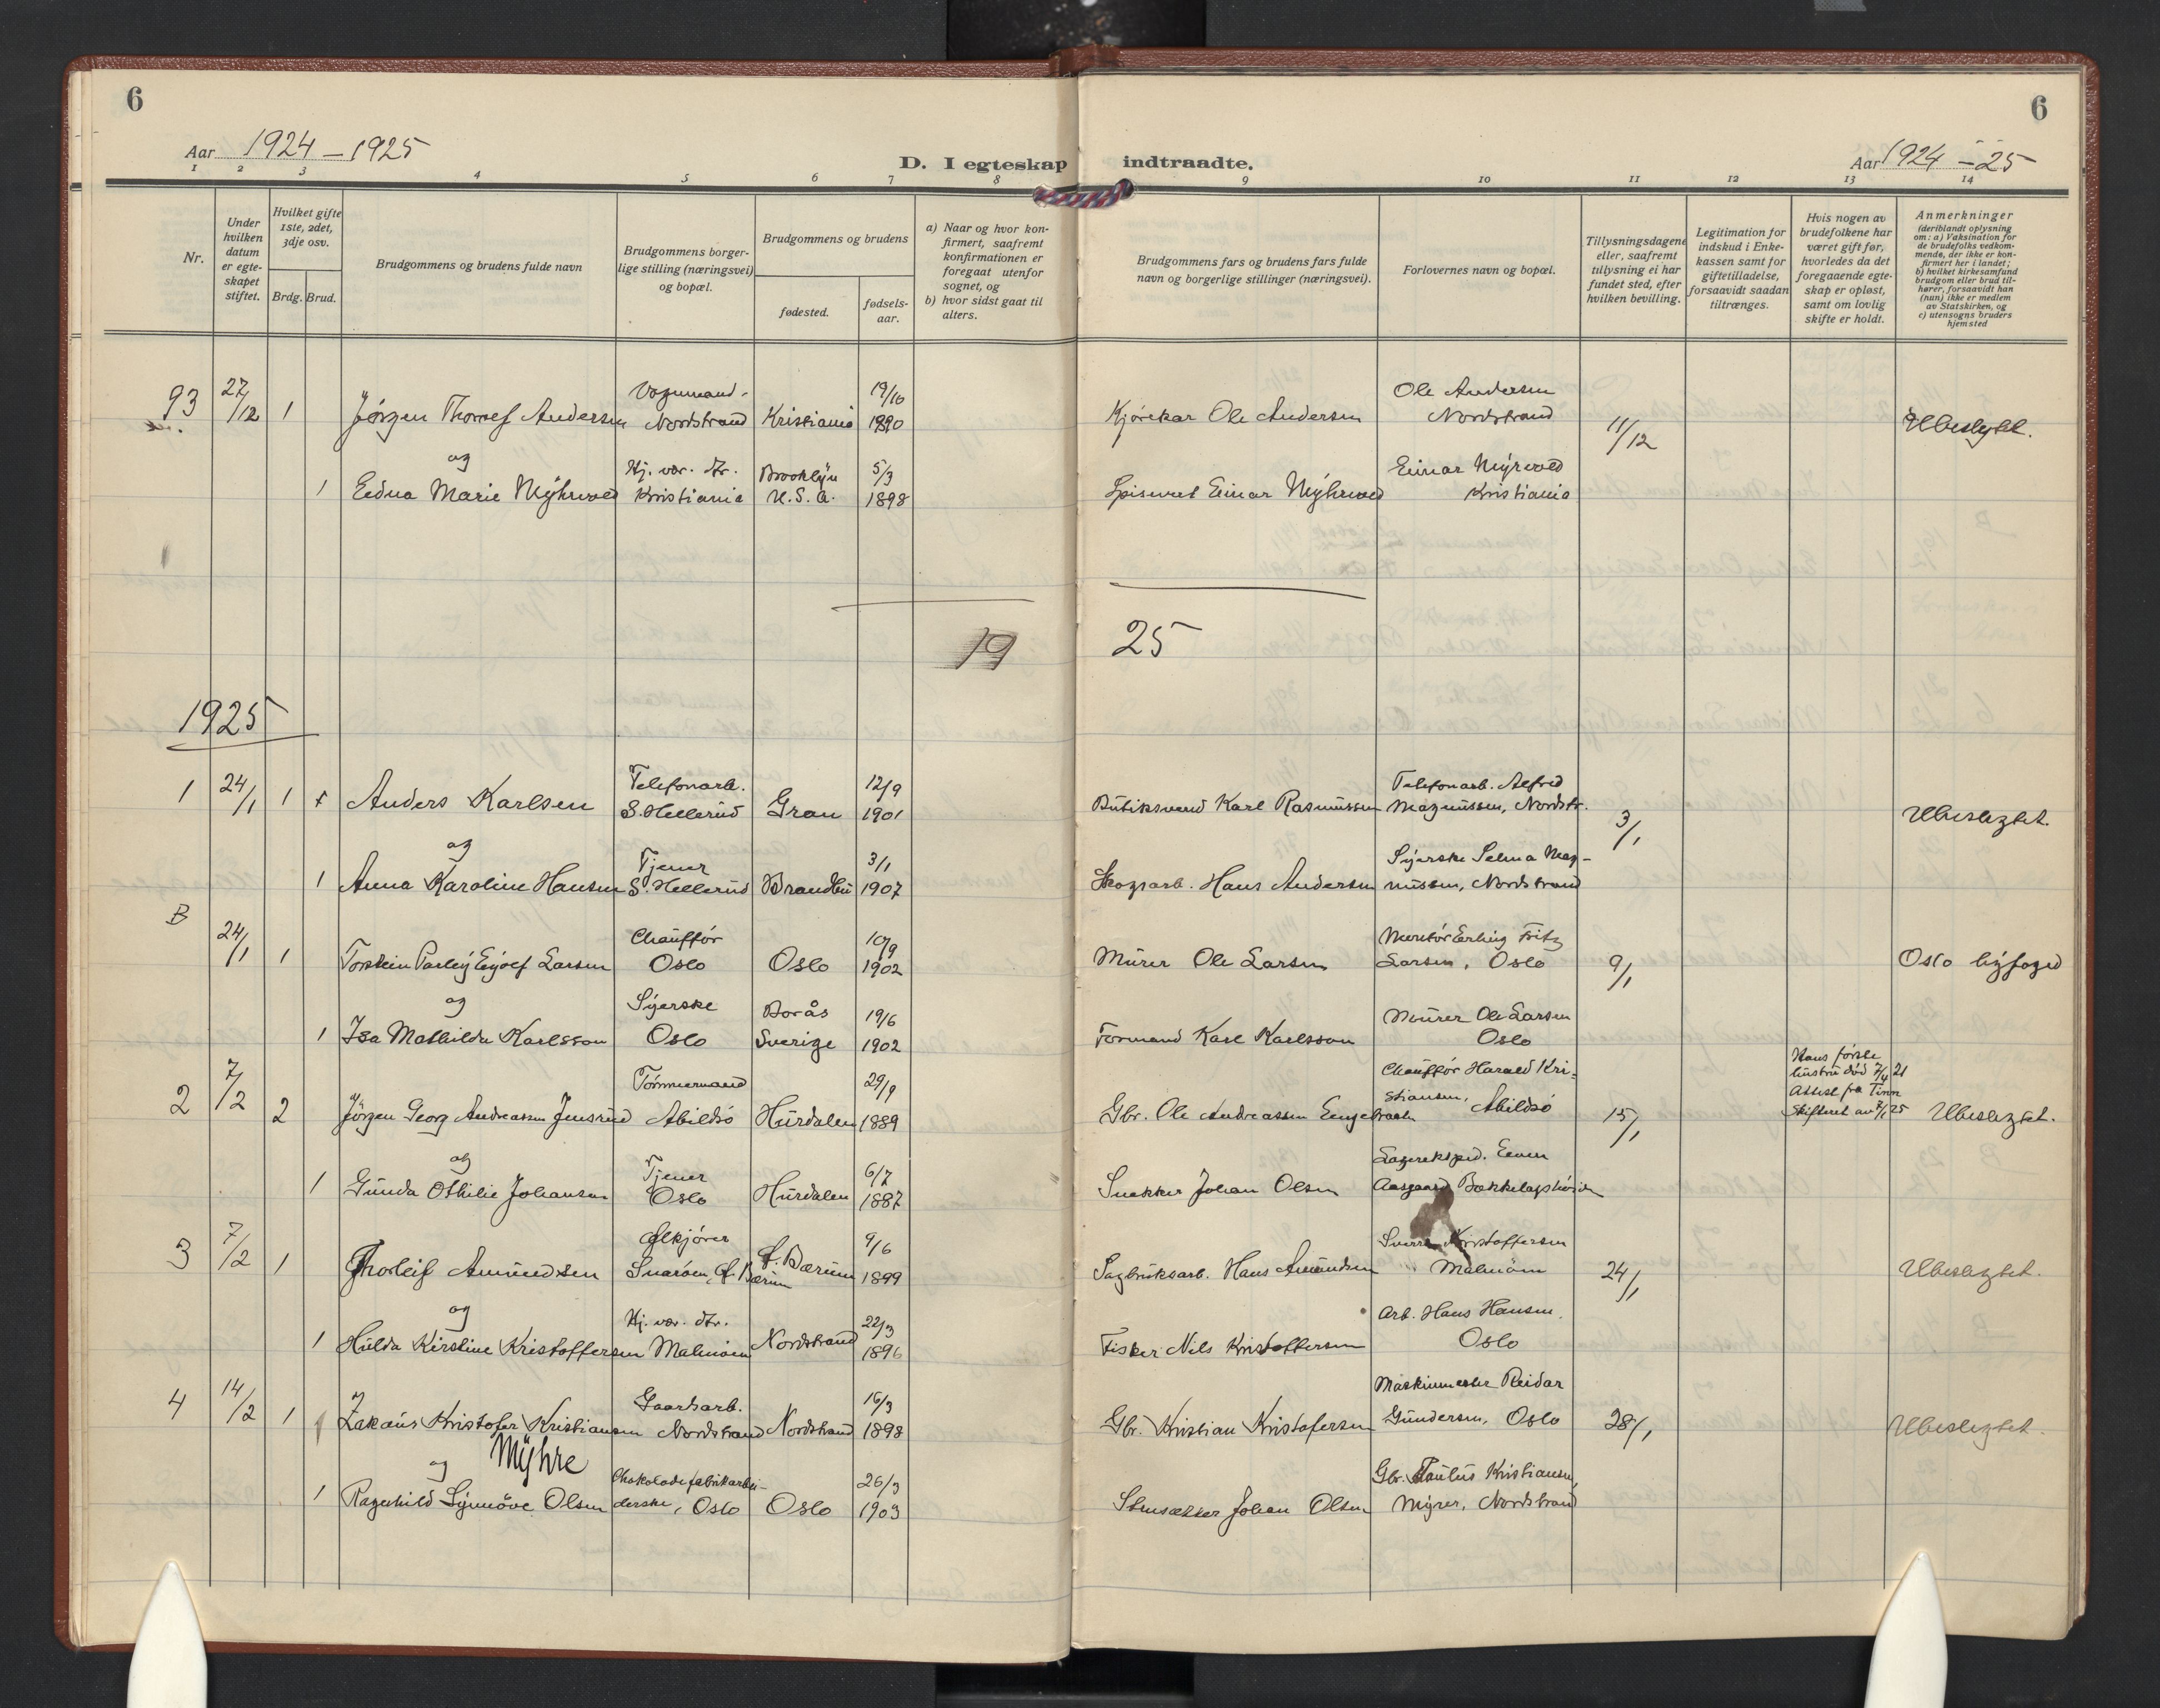 6
6
Aar 1924–1925
D. I egteskap indtraadte.
Aar 1924–25
1 2 3 4 5 6 7 8 9 10 11 12 13 14
Nr.
Under hvilken datum er egteskapet stiftet.
Hvilket gifte 1ste, 2det, 3dje osv.
Brdg. Brud.
Brudgommens og brudens fulde navn
Brudgommens borgerlige stilling (næringsvei) og bopæl.
Brudgommens og brudens
fødested.
fødselsaar.
a) Naar og hvor konfirmert, saafremt konfirmationen er foregaat utenfor sognet, og
b) hvor sidst gaat til alters.
Brudgommens fars og brudens fars fulde navn og borgerlige stillinger (næringsvei).
Forlovernes navn og bopæl.
Tillysningsdagene eller, saafremt tillysning ei har fundet sted, efter hvilken bevilling.
Legitimation for indskud i Enkekassen samt for giftetilladelse, forsaavidt saadan tiltrænges.
Hvis nogen av brudefolkene har været gift før, hvorledes da det foregaaende egteskap er opløst, samt om lovlig skifte er holdt.
Anmerkninger
(deriblandt oplysning om: a) Vaksination for de brudefolks vedkommende, der ikke er konfirmert her i landet;
b) hvilket kirkesamfund brudgom eller brud tilhører, forsaavidt han (hun) ikke er medlem av Statskirken, og
c) utensogns bruders hjemsted
93 27/12 1 Jörgen Thorolf Andersen Vognmand. Nordstrand Kristiania 19/10 1890 Kjörekar Ole Andersen Ole Andersen Nordstrand 11/12 Ubeslegtet.
og
1 Edna Marie Myhrvold Hj. vær. dtr. Kristiania Brooklyn U.S.A. 5/3 1898 Einar Myhrvold Einar Myrvold Kristiania
19 25
1925
1 24/1 1 Anders Karlsen Telefonarb. S. Hellerud Gran 12/9 1901 Karl Rasmussen Telefonarb. Alfred Magnussen, Nordstr. 3/1 Ubeslegtet.
og
1 Anna Karoline Hansen Tjener S. Hellerud Brandbu 3/1 1907 Skogsarb. Hans Andersen Syerske Selma Magnussen, Nordstrand
B 24/1 1 Torstein Parley Eyolf Larsen Chauffør Oslo Oslo 10/9 1902 Murer Ole Larsen Montör Erling Fritz Larsen, Oslo 9/1 Oslo byfoged
og
1 Isa Mathilde Karlsson Syerske Oslo Borås Sverige 19/6 1902 Formand Karl Karlsson Murer Ole Larsen Oslo
2 7/2 2 Jörgen Georg Andreassen Jensrud Tömmermand Abildsö Hurdalen 29/9 1889 Gbr. Ole Andreassen Engebraaten Chauffør Harald Kristiansen, Abildsö 15/1 Hans förste hustru död 7/4 21 Attest fra Tinn Skifteret av 7/1 25 Ubeslegtet.
og
1 Gunda Othilie Johansen Tjener Oslo Hurdalen 6/7 1887 Snekker Johan Olsen Lagerekspd. Even Aasgaard Bækkelagshöiden
3 7/2 1 Thorleif Amundsen Ölkjörer Snaröen, Ö. Bærum Ö. Bærum 9/6 1899 Sagbruksarb. Hans Amundsen Sverre Kristoffersen Malmöen 24/1 Ubeslegtet.
og
1 Hulda Kirstine Kristoffersen Hj. vær. dtr. Malmöen Nordstrand 22/3 1896 Fisker Nils Kristoffersen Arb. Hans Hansen. Oslo
4 14/2 1 Zakaus Kristofer Kristiansen Myhre Gaardsarb. Nordstrand Nordstrand 16/3 1898 Gbr. Kristian Kristofersen Maskinmester Reidar Gundersen, Oslo 28/1 Ubeslegtet.
og
1 Ragnhild Synnöve Olsen Chokoladefabrikarbeiderske, Oslo Oslo 26/3 1903 Stensætter Johan Olsen Gbr. Paulus Kristiansen Myrer, Nordstrand